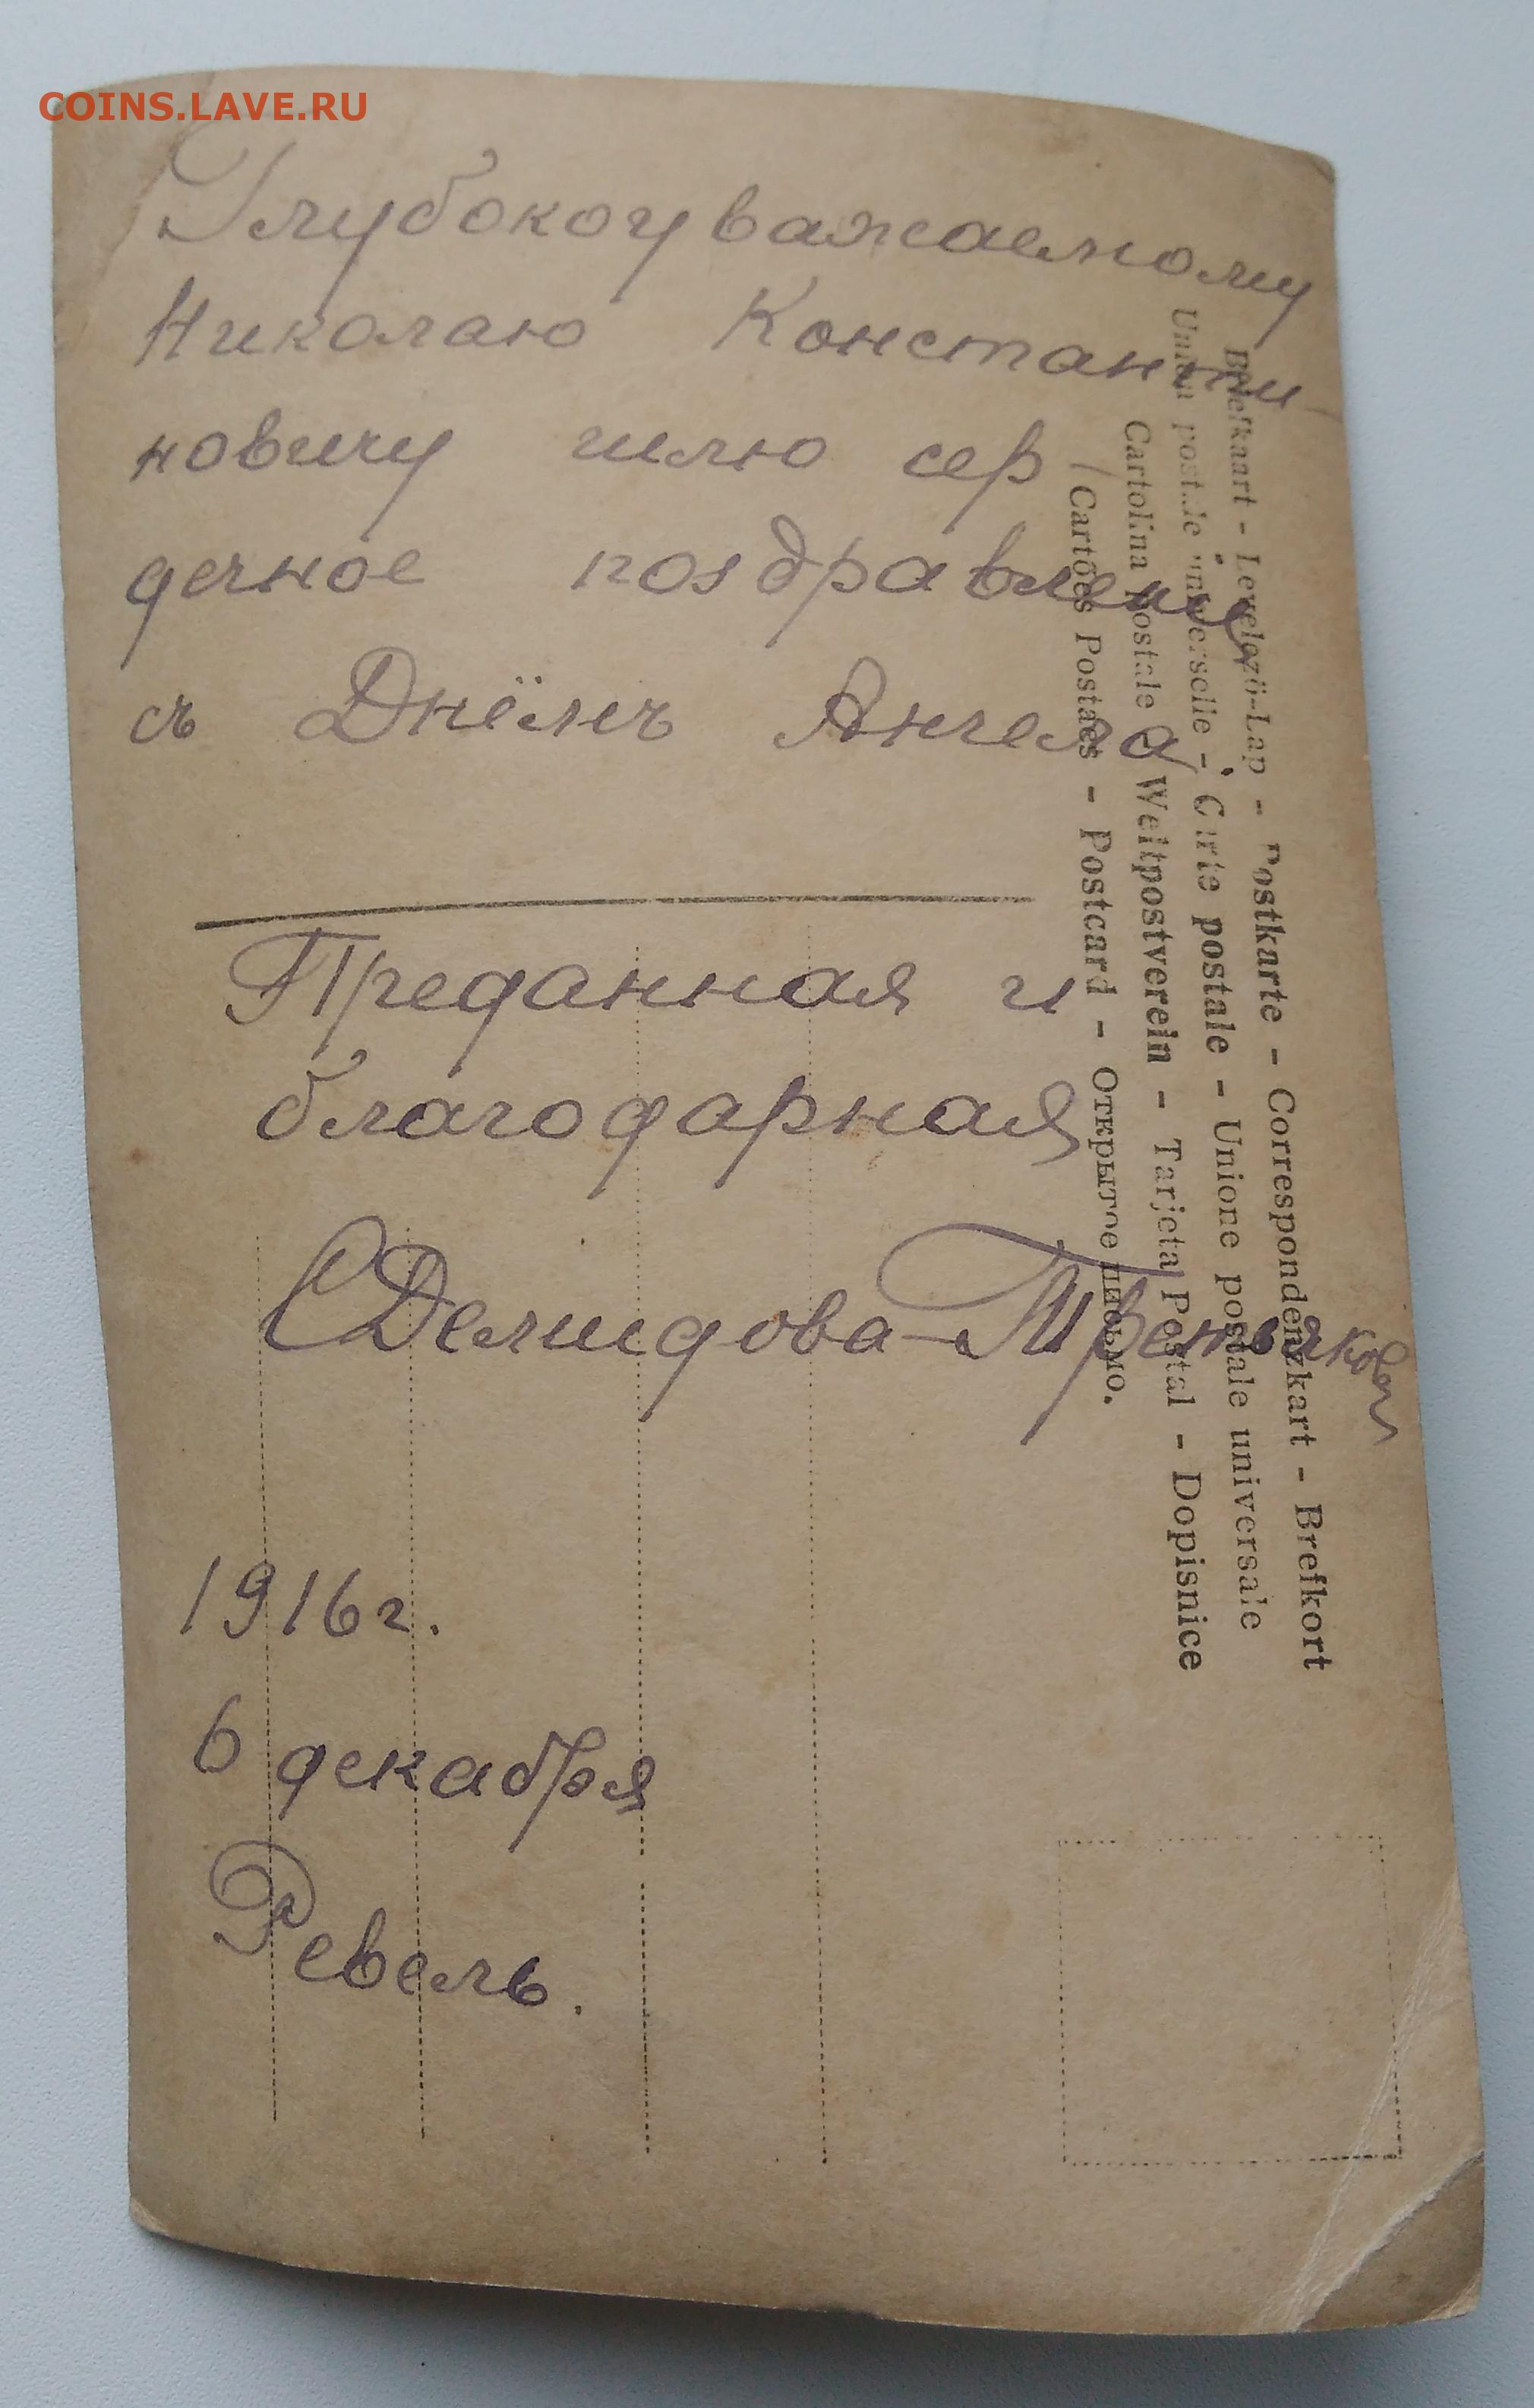 COINS.LAVE.RU
Глубокоуважаемому
Николаю Константи-
новичу шлю сер
дечное поздравление
съ Днёмъ Ангела
Преданная и
благодарная
Демидова-Третьякова
1916 г.
6 декабря
Ревель.
Briefkaart - Levelező-Lap - Postkarte - Correspondenzkart - Brefkort
Union postale universelle - Carte postale - Unione postale universale
Cartolina postale Weltpostverein - Tarjeta Postal - Dopisnice
Cartões Postaes - Postcard - Открытое письмо.